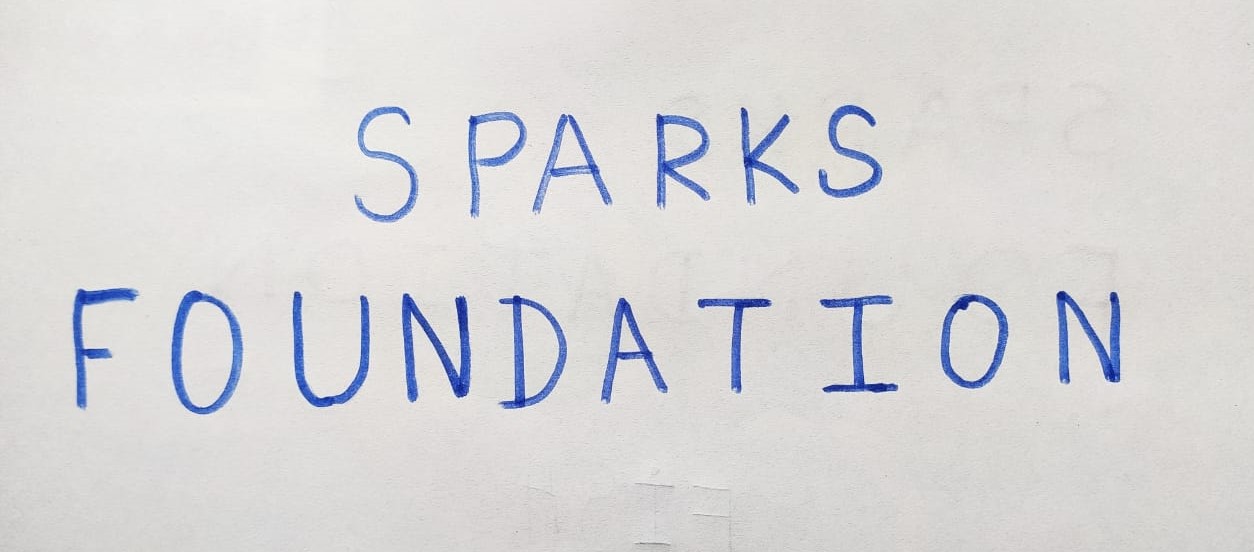 SPARKS
FOUNDATION